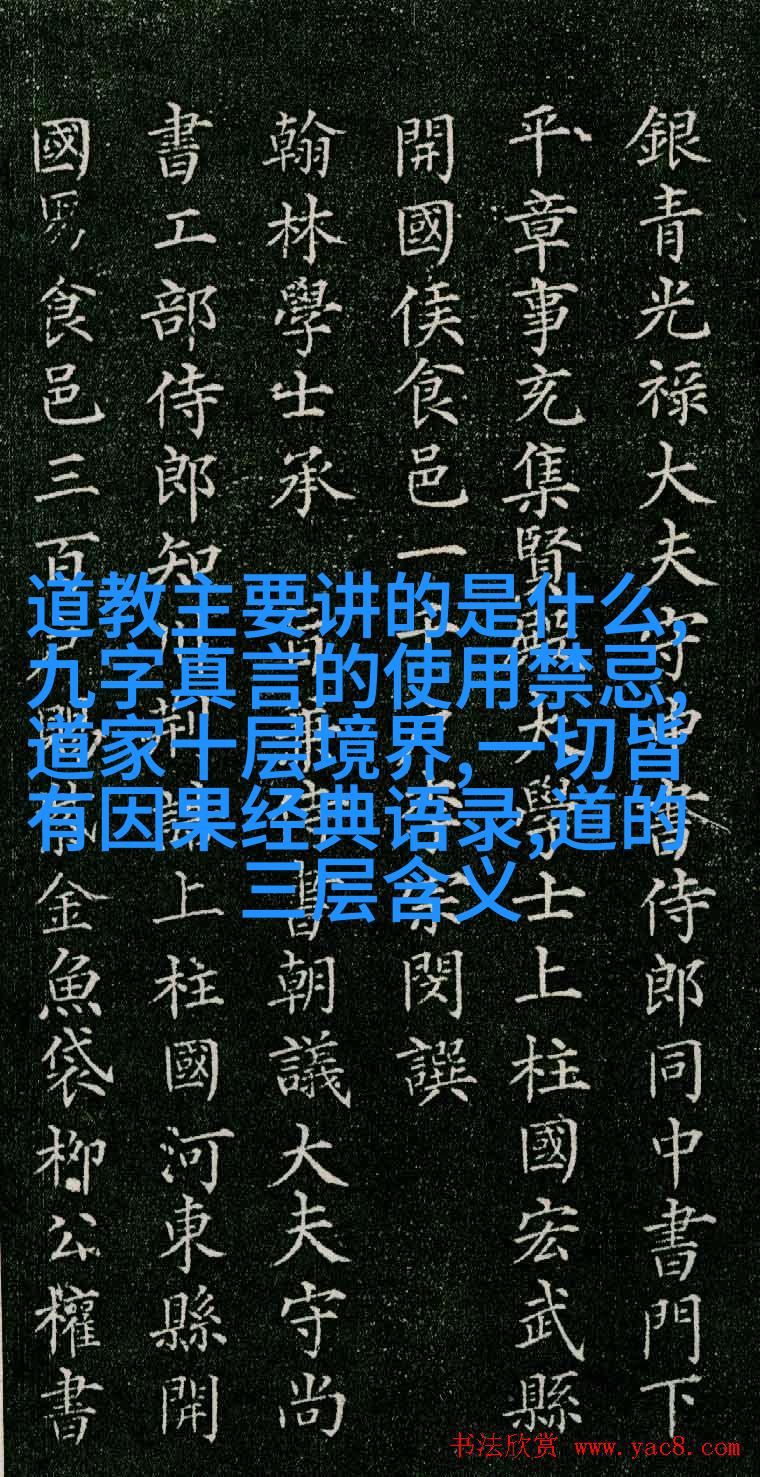 銀青光禄大夫守侍郎同中書門下
平章事充集賢大學士上柱國宏武縣
開國侯食邑一宗閔譔
翰林學士承書朝議大夫守尚
書工部侍郎知上柱國河東縣開
國男食邑三百金魚袋柳公權書
道教主要讲的是什么,
九字真言的使用禁忌,
道家十层境界,一切皆
有因果经典语录,道的
三层含义
书法欣赏 www.yac8.com